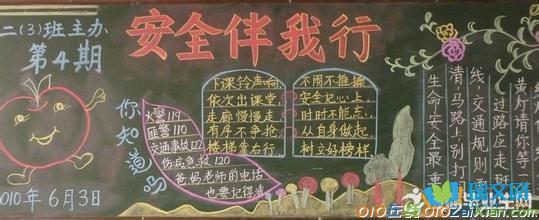 二(3)班主办
第4期
安全伴我行
010年6月3
你知道吗
火警119
匪警110
交通事故122
伤病急救120
爸妈老师的电话
也要记得清
下课铃声响
依次出课堂
走廊慢慢走
有序不争抢
楼梯靠右行
不闹不推搡
安全记心上,
时时不能忘。
从自身做起,
树立好榜样
黄灯请你
过路应走斑
线,交通规则
清,马路上别打
生命安全最重